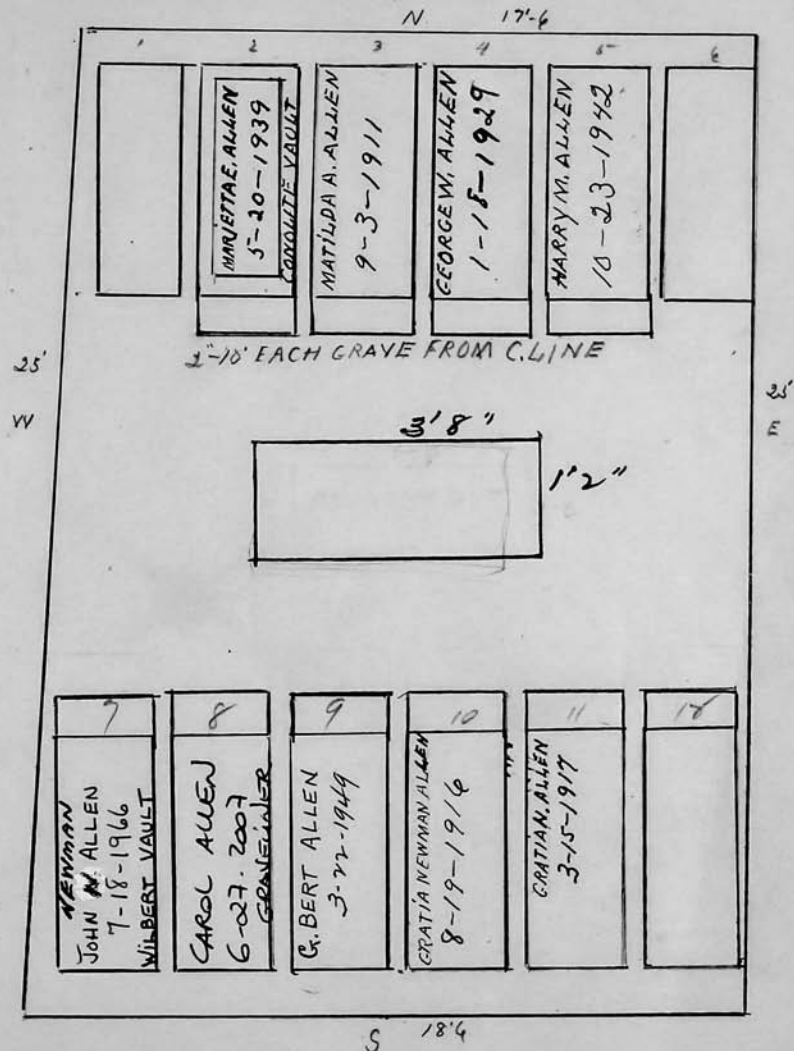 N 17'-6
1 2 3 4 5 6
MARJETTA E. ALLEN
5-20-1939
CONDUITE VAULT
MATILDA A. ALLEN
9-3-1911
GEORGE W. ALLEN
1-18-1929
HARRY M. ALLEN
10-23-1942
EACH GRAVE FROM C. LINE
25'
W
25'
E
3' 8"
1' 2"
7 8 9 10 11 12
NEWMAN
JOHN N. ALLEN
7-18-1966
WILBERT VAULT
CAROL ALLEN
6-27-2007
GRAVELINER
G. BERT ALLEN
3-22-1949
GRATIA NEWMAN ALLEN
8-19-1916
GRATIA N. ALLEN
3-15-1917
S 18'6